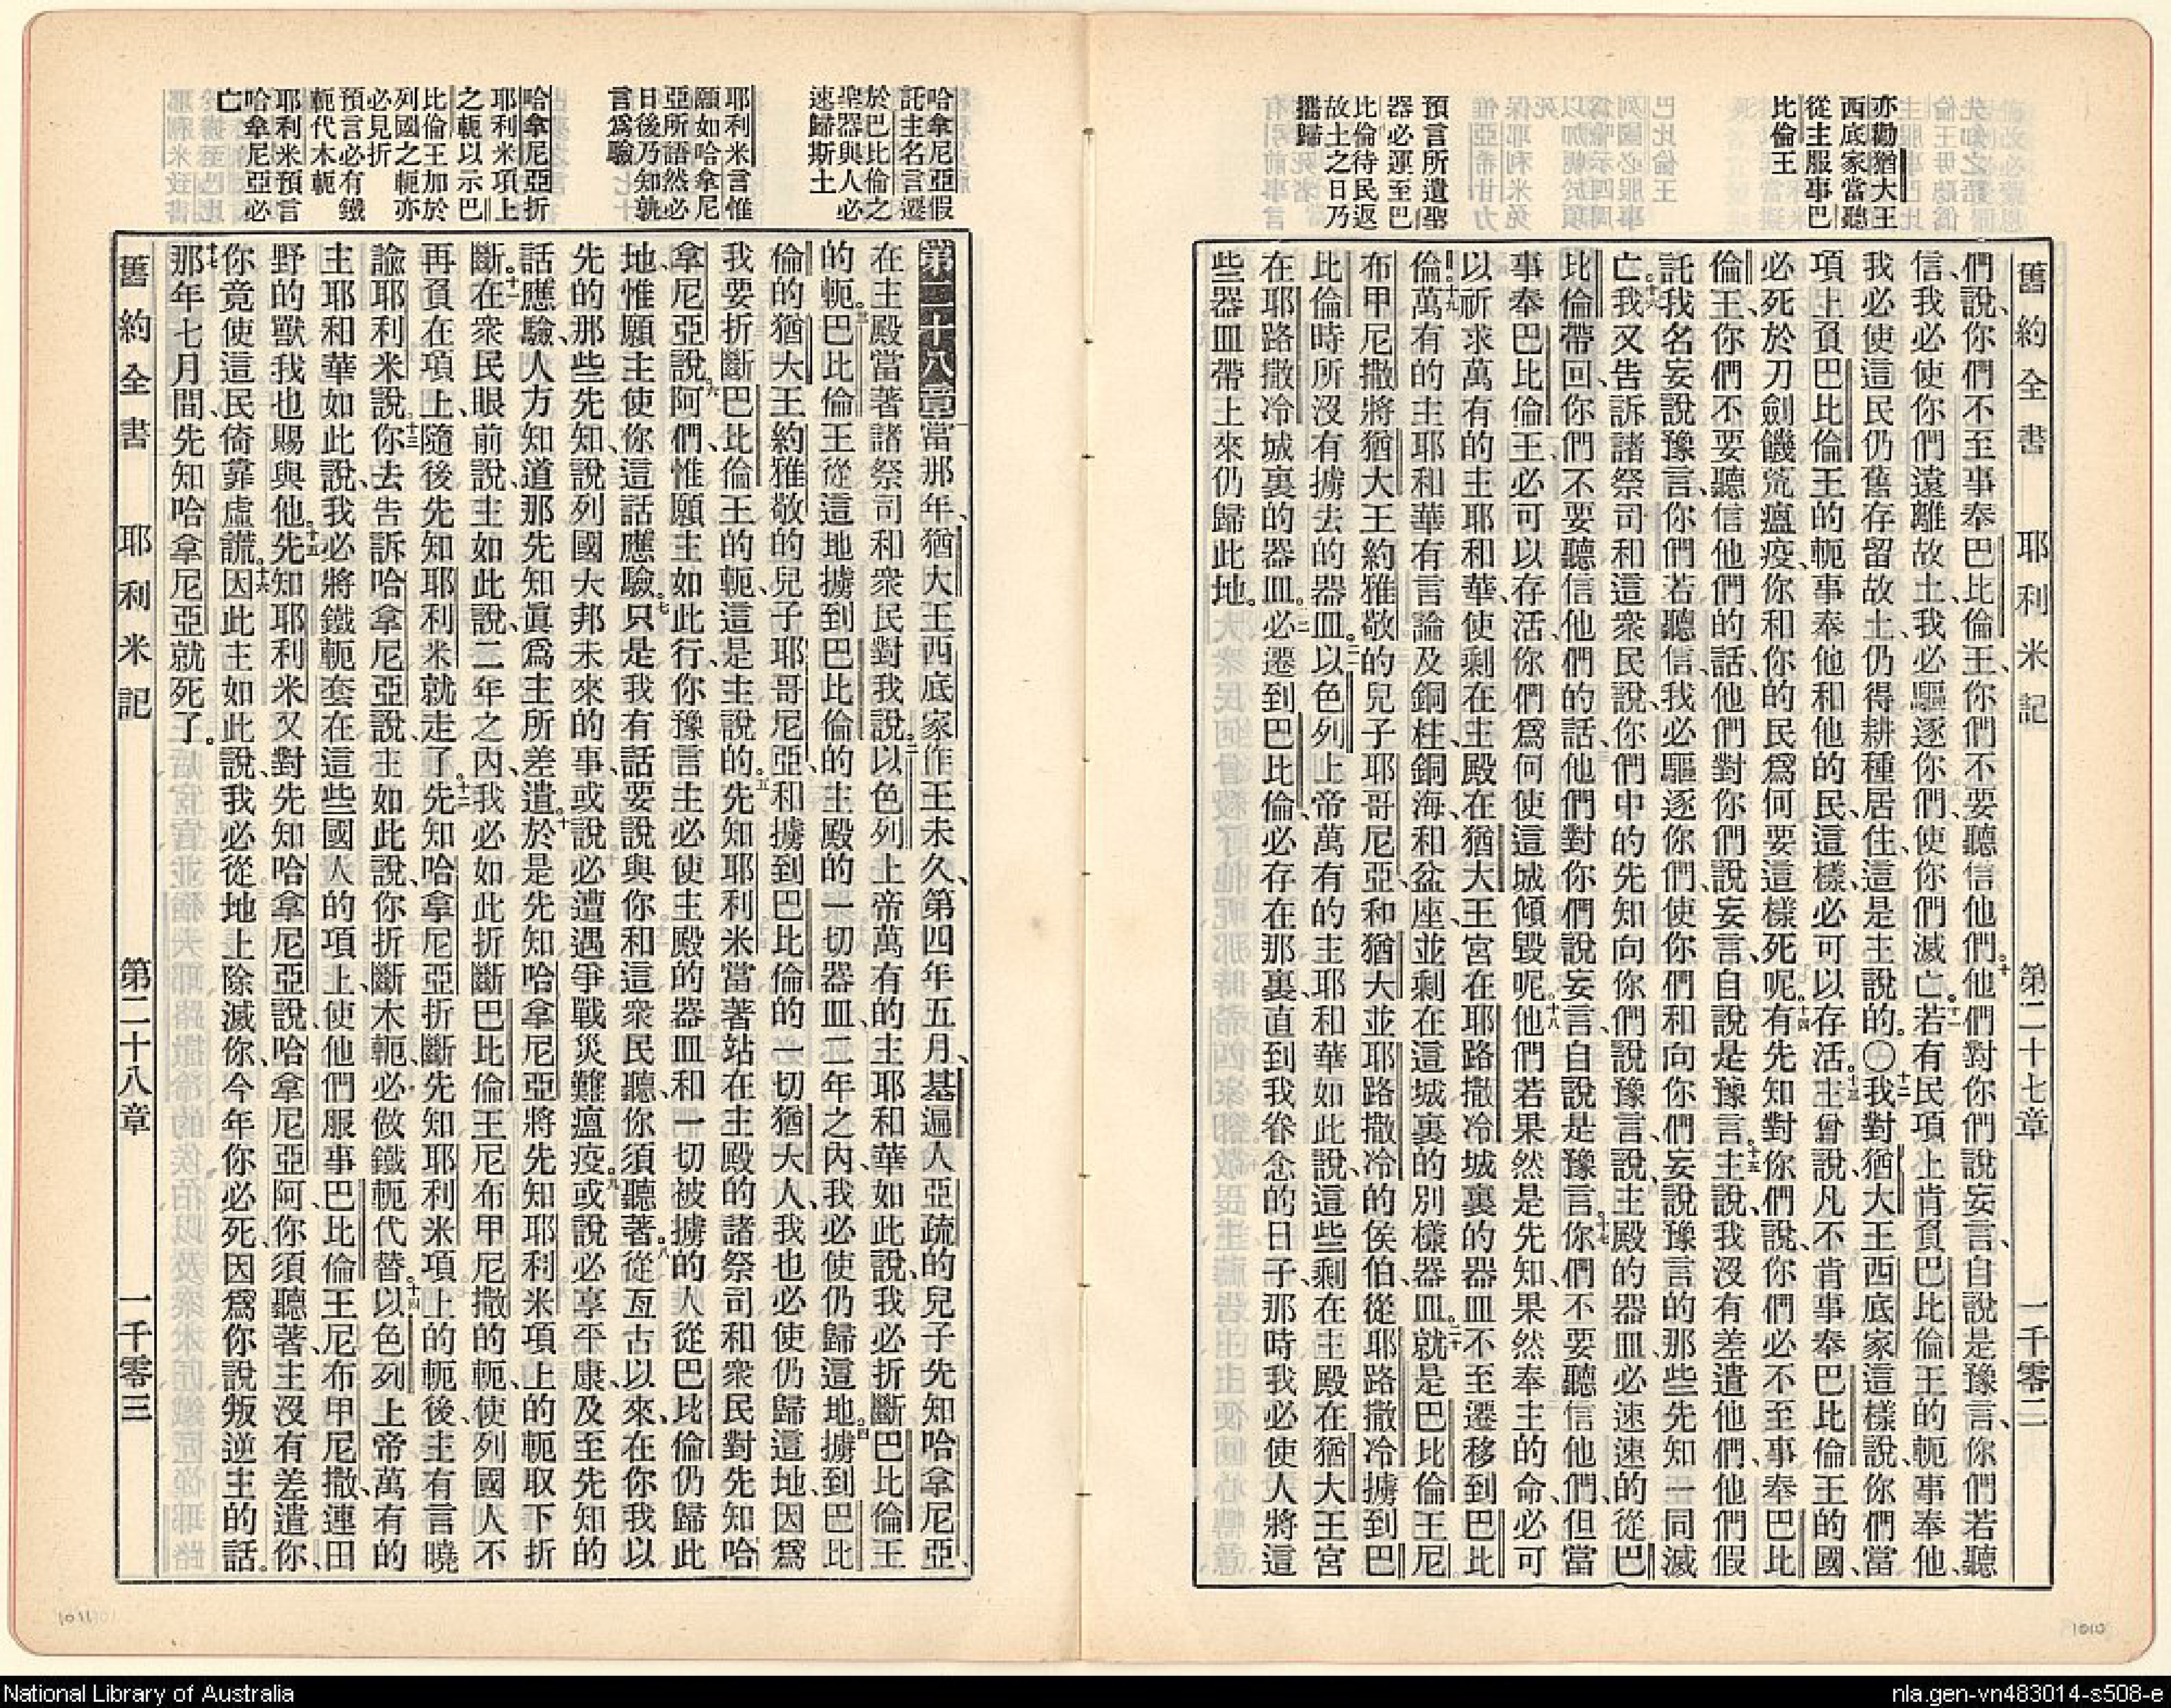 亦勸猶大王
西底家當聽
從主服事巴
比倫王
預言所遺聖
器必運至巴
比倫待民返
故土之日乃
攜歸
舊約全書 耶利米記 第二十七章 一千零二
們說、你們不至事奉巴比倫王、你們不要聽信他們。十他們對你們說妄言、自說是豫言、你們若聽
信、我必使你們遠離故土、我必驅逐你們、使你們滅亡。十一若有民項上肯負巴比倫王的軛事奉他、
我必使這民仍舊存留故土、仍得耕種居住、這是主說的。〇十二我對猶大王西底家這樣說、你們當
項上負巴比倫王的軛、事奉他和他的民、這樣、必可以存活。十三主曾說、凡不肯事奉巴比倫王的國、
必死於刀劍饑荒瘟疫、你和你的民爲何要這樣死呢。十四有先知對你們說、你們必不至事奉巴比
倫王、你們不要聽信他們的話、他們對你們說妄言、自說是豫言。十五主說、我沒有差遣他們、他們假
託我名妄說豫言、你們若聽信、我必驅逐你們、使你們和向你們妄說豫言的那些先知一同滅
亡。十六我又告訴諸祭司和這衆民說、你們中的先知向你們說豫言、說、主殿的器皿必速速的從巴
比倫帶回、你們不要聽信他們的話、他們對你們說妄言、自說是豫言。十七你們不要聽信他們、但當
事奉巴比倫王、必可以存活、你們爲何使這城傾毀呢。十八他們若果然是先知、果然奉主的命、必可
以祈求萬有的主耶和華、使剩在主殿在猶大王宮在耶路撒冷城裏的器皿不至遷移到巴比
倫。十九萬有的主耶和華有言論及銅柱、銅海、和盆座、並剩在這城裏的別樣器皿、二十就是巴比倫王尼
布甲尼撒、將猶大王約雅敬的兒子耶哥尼亞、和猶大並耶路撒冷的侯伯、從耶路撒冷擄到巴
比倫時、所沒有擄去的器皿。二一以色列上帝萬有的主耶和華如此說、這些剩在主殿在猶大王宮
在耶路撒冷城裏的器皿。二二必遷到巴比倫、必存在那裏、直到我眷念的日子、那時我必使人將這
些器皿帶上來仍歸此地。
哈拿尼亞假
託主名言遷
於巴比倫之
聖器與人必
速歸斯土
耶利米言惟
願如哈拿尼
亞所語然必
日後乃知孰
言爲驗
哈拿尼亞折
耶利米項上
之軛以示巴
比倫王加於
列國之軛亦
必見折
預言必有鐵
軛代木軛
耶利米預言
哈拿尼亞必
亡
第二十八章當那年、猶大王西底家作王未久、第四年五月、基遍人亞疏的兒子先知哈拿尼亞、
在主殿當著諸祭司和衆民對我說、二以色列上帝萬有的主耶和華如此說、我必折斷巴比倫王
的軛。三巴比倫王從這地擄到巴比倫的主殿的一切器皿、二年之內、我必使仍歸這地。四擄到巴比
倫的猶大王約雅敬的兒子耶哥尼亞、和擄到巴比倫的一切猶大人、我也必使仍歸這地、因爲
我要折斷巴比倫王的軛、這是主說的。五先知耶利米當著站在主殿的諸祭司和衆民對先知哈
拿尼亞說、六阿們、惟願主如此行、你豫言主必使主殿的器皿和一切被擄的人從巴比倫仍歸此
地、惟願主使你這話應驗。七只是我有話要說與你和這衆民聽、你須聽著。八從亙古以來、在你我以
先的那些先知、說列國大邦未來的事、或說必遭遇爭戰災難瘟疫、九或說必享平康、及至先知的
話應驗、人方知道那先知眞爲主所差遣。十於是先知哈拿尼亞將先知耶利米項上的軛取下折
斷。十一在衆民眼前說、主如此說、二年之內、我必如此折斷巴比倫王尼布甲尼撒的軛、使列國人不
再負在項上、隨後先知耶利米就走了。十二先知哈拿尼亞折斷先知耶利米項上的軛後、主有言曉
諭耶利米說、十三你去告訴哈拿尼亞說、主如此說、你折斷木軛、必做鐵軛代替。十四以色列上帝萬有的
主耶和華如此說、我必將鐵軛套在這些國人的項上、使他們服事巴比倫王尼布甲尼撒、連田
野的獸我也賜與他。十五先知耶利米又對先知哈拿尼亞說、哈拿尼亞阿、你須聽著、主沒有差遣你、
你竟使這民倚靠虛謊。十六因此主如此說、我必從地上除滅你、今年你必死、因爲你說叛逆主的話。
十七那年七月間、先知哈拿尼亞就死了。
舊約全書 耶利米記 第二十八章 一千零三
1011
1010
National Library of Australia
nla.gen-vn483014-s508-e